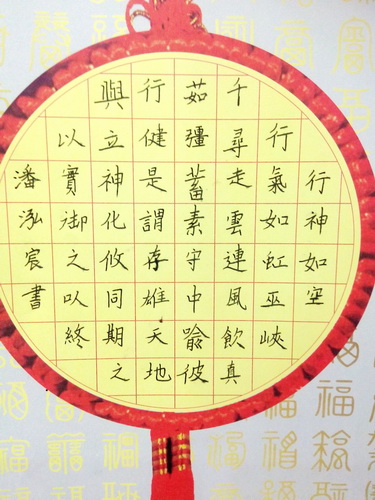 行神如空
行氣如虹巫峽
千尋走雲連風飲真
茹彊蓄素守中喻彼
行健是謂存雄天地
與立神化攸同期之
以實御之以終
潘泓宸書